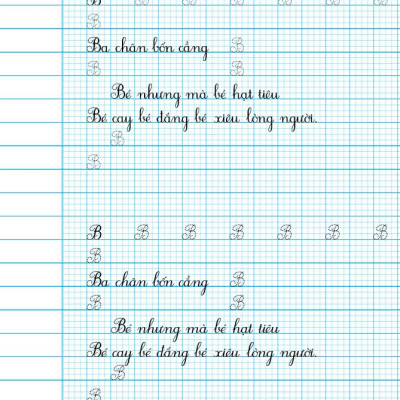 B B B B B B B
B
Ba chân bốn cẳng B
B B
Bé nhưng mà bé hạt tiêu
Bé cay bé đắng bé xiêu lòng người.
B
B
B B B B B B B
B
Ba chân bốn cẳng B
B B
Bé nhưng mà bé hạt tiêu
Bé cay bé đắng bé xiêu lòng người.
B
B